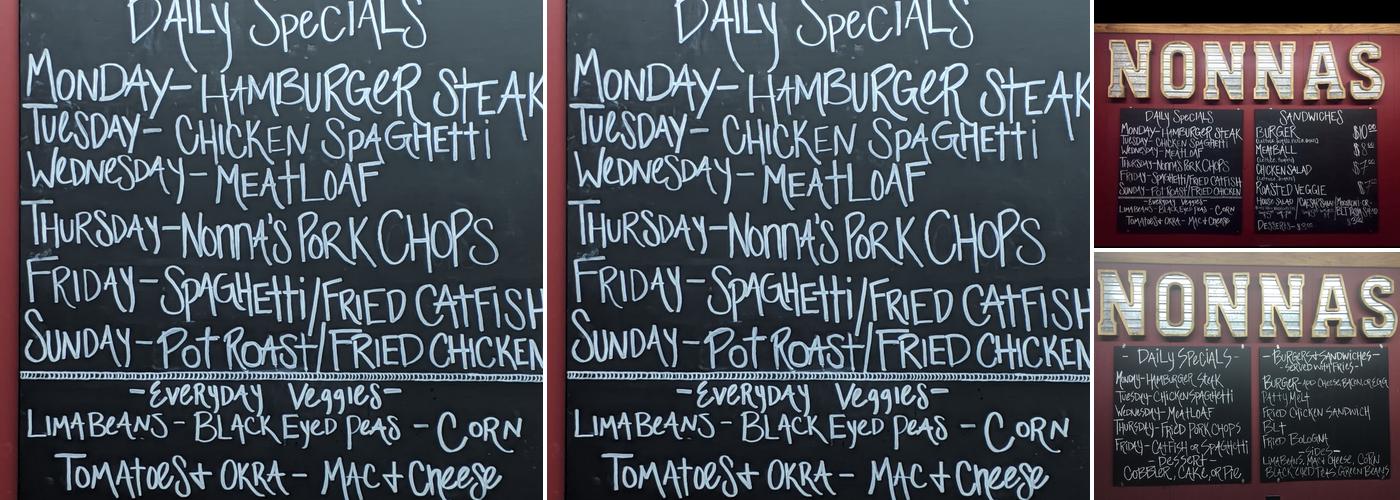 DAILY SPECIALS
MONDAY - HAMBURGER STEAK
TUESDAY - CHICKEN SPAGHETTI
WEDNESDAY - MEATLOAF
THURSDAY - NONNA'S PORK CHOPS
FRIDAY - SPAGHETTI/FRIED CATFISH
SUNDAY - POT ROAST/FRIED CHICKEN
- EVERYDAY VEGGIES -
LIMA BEANS - BLACK EYED PEAS - CORN
TOMATOES + OKRA - MAC + CHEESE
DAILY SPECIALS
MONDAY - HAMBURGER STEAK
TUESDAY - CHICKEN SPAGHETTI
WEDNESDAY - MEATLOAF
THURSDAY - NONNA'S PORK CHOPS
FRIDAY - SPAGHETTI/FRIED CATFISH
SUNDAY - POT ROAST/FRIED CHICKEN
- EVERYDAY VEGGIES -
LIMA BEANS - BLACK EYED PEAS - CORN
TOMATOES + OKRA - MAC + CHEESE
NONNAS
DAILY SPECIALS
MONDAY - HAMBURGER STEAK
TUESDAY - CHICKEN SPAGHETTI
WEDNESDAY - MEATLOAF
THURSDAY - NONNA'S PORK CHOPS
FRIDAY - SPAGHETTI/FRIED CATFISH
SUNDAY - POT ROAST/FRIED CHICKEN
- EVERYDAY VEGGIES -
LIMA BEANS - BLACK EYED PEAS - CORN
TOMATOES + OKRA - MAC + CHEESE
SANDWICHES
BURGER $10
MEATBALL
CHICKEN SALAD
ROASTED VEGGIE
HOUSE SALAD / CAESAR SALAD
DESSERTS
NONNAS
- DAILY SPECIALS -
MONDAY - HAMBURGER STEAK
TUESDAY - CHICKEN SPAGHETTI
WEDNESDAY - MEATLOAF
THURSDAY - FRIED PORK CHOPS
FRIDAY - CATFISH OR SPAGHETTI
- DESSERT -
COBBLER, CAKE, OR PIE
- BURGERS + SANDWICHES -
- SERVED WITH FRIES -
BURGER - ADD CHEESE, BACON, OR EGG
PATTY MELT
FRIED CHICKEN SANDWICH
BLT
FRIED BOLOGNA
- SIDES -
LIMA BEANS, MAC + CHEESE, CORN
BLACK EYED PEAS, GREEN BEANS